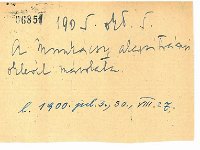 06851
1905. okt. 5.
A Munkácsy alapítvány
oklevél másolata.
l. 1900. jul. 2, 30., VIII. 27.